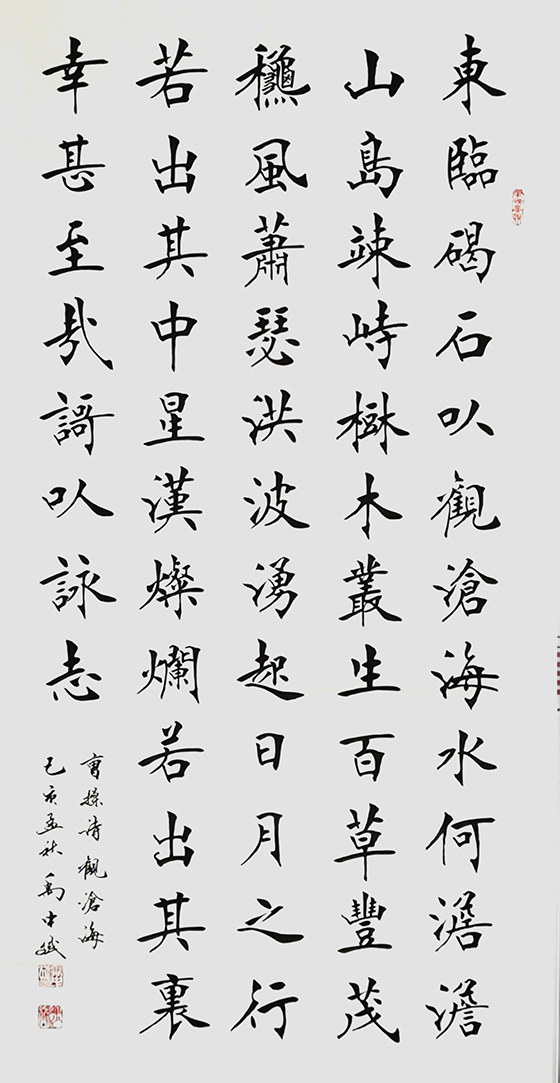 東臨碣石㕥觀滄海水何澹澹
山島竦峙樹木叢生百草豐茂
龝風蕭瑟洪波湧起日月之行
若出其中星漢燦爛若出其裏
幸甚至哉謌㕥詠志
曹操詩觀滄海
己亥孟秋禹中斌